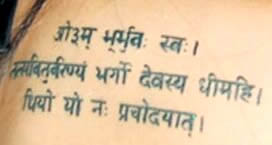 ओ३म् भूर्भुवः स्वः।
तत्सवितुर्वरेण्यं भर्गो देवस्य धीमहि।
धियो यो नः प्रचोदयात्।